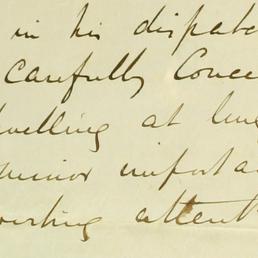 in his dispatc
carefully conce
dwelling at leng
minor importa
verting attent